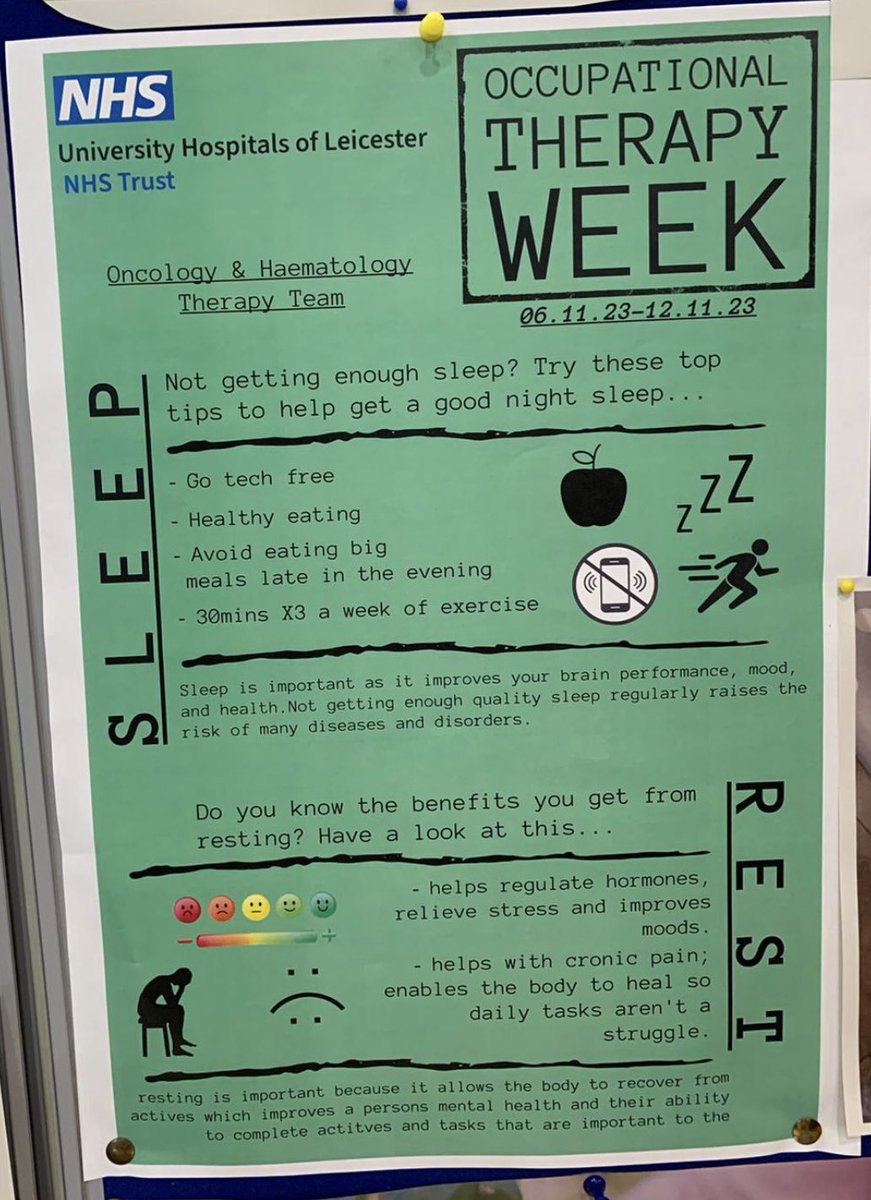 NHS
University Hospitals of Leicester
NHS Trust
OCCUPATIONAL
THERAPY
WEEK
06.11.23-12.11.23
Oncology & Haematology
Therapy Team
SLEEP
Not getting enough sleep? Try these top
tips to help get a good night sleep...
- Go tech free
- Healthy eating
- Avoid eating big
meals late in the evening
- 30mins X3 a week of exercise
zZZ
Sleep is important as it improves your brain performance, mood,
and health.Not getting enough quality sleep regularly raises the
risk of many diseases and disorders.
REST
Do you know the benefits you get from
resting? Have a look at this...
- helps regulate hormones,
relieve stress and improves
moods.
- helps with cronic pain;
enables the body to heal so
daily tasks aren't a
struggle.
- +
resting is important because it allows the body to recover from
actives which improves a persons mental health and their ability
to complete actitves and tasks that are important to the